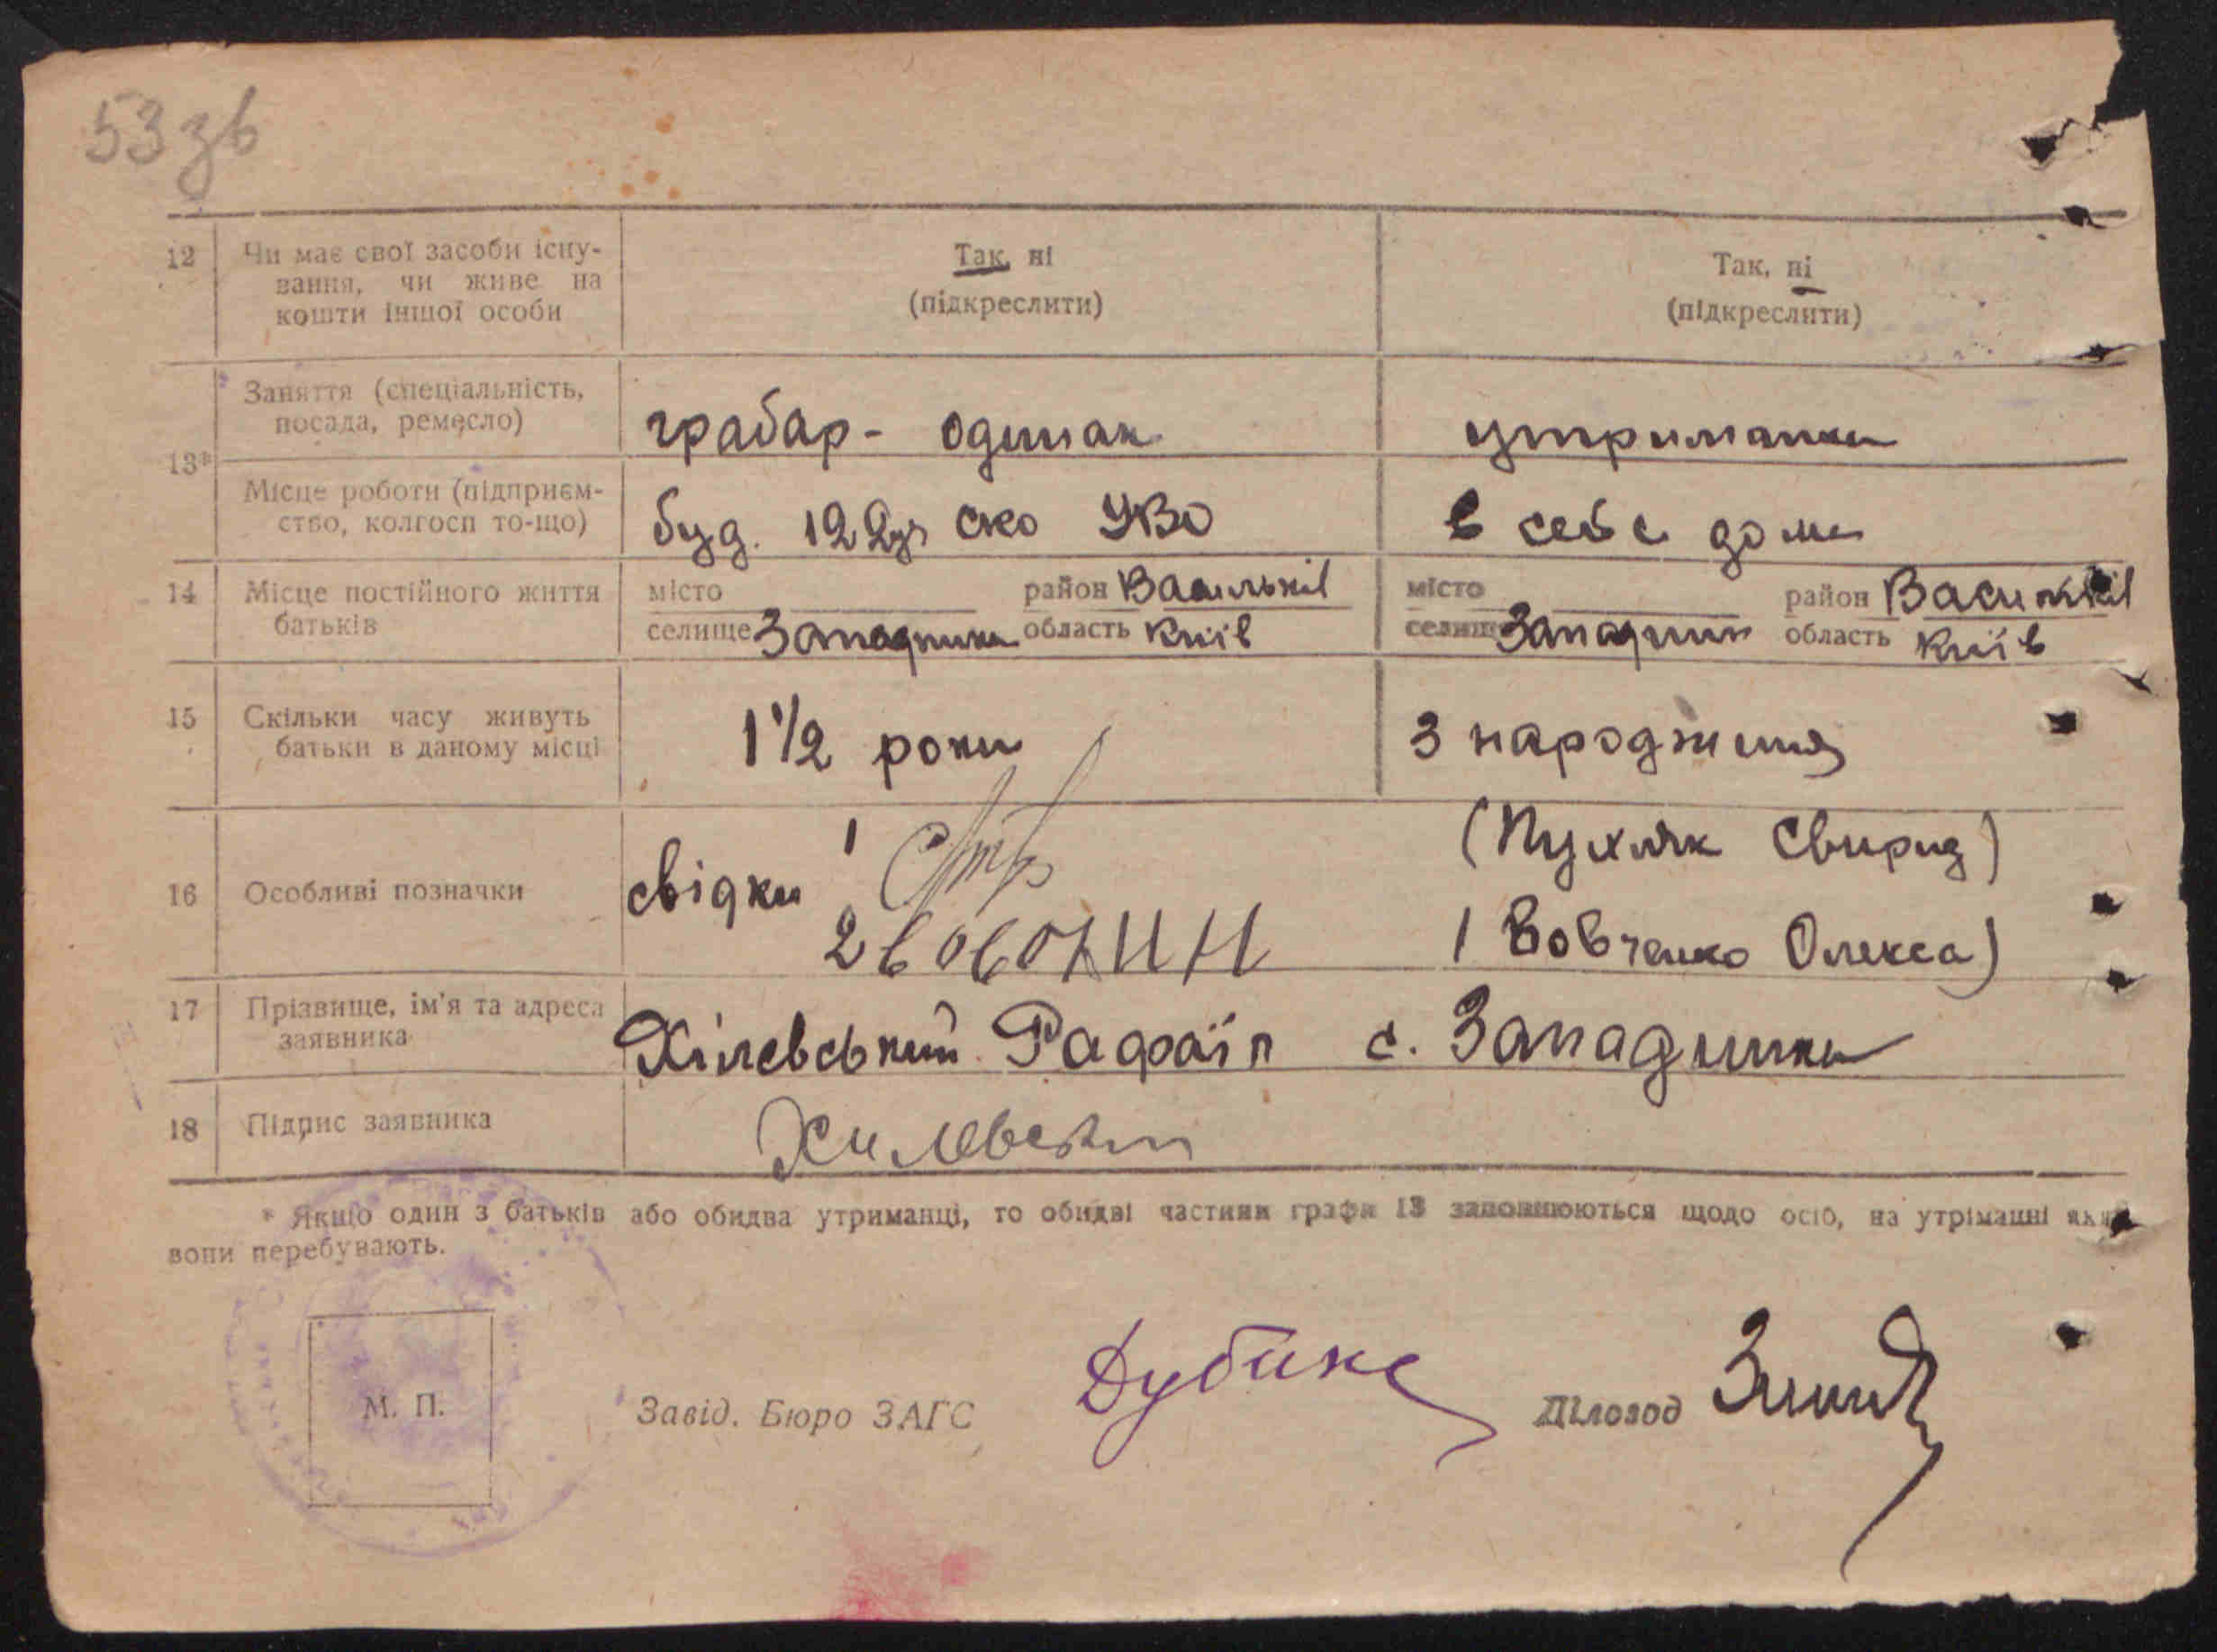 53 зв
12 Чи має свої засоби існу-
вання, чи живе на
кошти іншої особи
Так, ні
(підкреслити)
Так, ні
(підкреслити)
13*
Заняття (спеціальність,
посада, ремесло)
грабар - одинак
утриманка
Місце роботи (підприєм-
ство, колгосп то-що)
буд. 122 УВО
в себе дома
14 Місце постійного життя
батьків
місто район Васильків
селище Западинка область Київ
місто район Васильків
селище Западинка область Київ
15 Скільки часу живуть
батьки в даному місці
1 1/2 роки
з народження
16 Особливі позначки
свідки 1 (Пухляк Свирид)
2 (Вовченко Олекса)
17 Прізвище, ім'я та адреса
заявника
Хілевський Рафаїл с. Западинка
18 Підпис заявника
* Якщо один з батьків або обидва утриманці, то обидві частини графи 13 заповнюються щодо осіб, на утріманні яких
вони перебувають.
М. П.
Завід. Бюро ЗАГС
Діловод